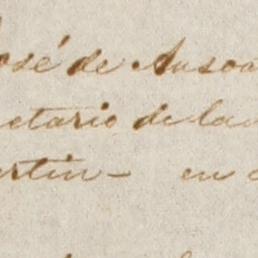 José de Ansoa
etario de la
ertin- en